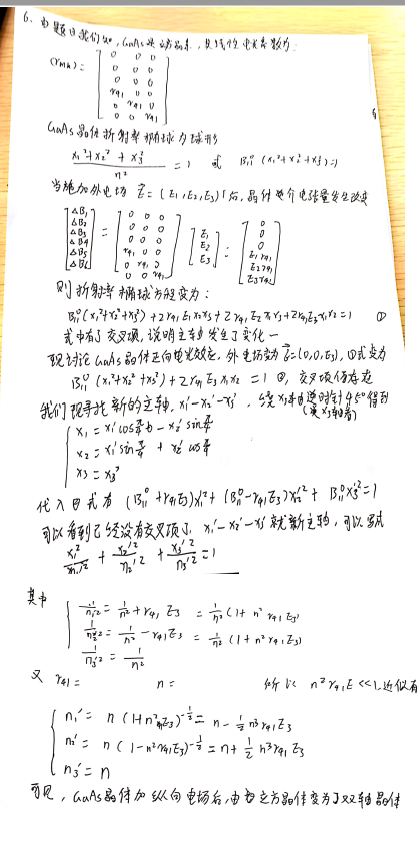 6. 由题目我们知, GaAs是立方晶系, 其线性电光系数为:
(γmk) = [0 0 0; 0 0 0; 0 0 0; γ41 0 0; 0 γ41 0; 0 0 γ41]
GaAs晶体折射率椭球为球形
(x1²+x2²+x3²)/n² = 1 或 B11⁰(x1²+x2²+x3²)=1
当施加外电场 E = (E1,E2,E3) 后, 晶体介电张量发生改变
[ΔB1; ΔB2; ΔB3; ΔB4; ΔB5; ΔB6] = [0 0 0; 0 0 0; 0 0 0; γ41 0 0; 0 γ41 0; 0 0 γ41] [E1; E2; E3] = [0; 0; 0; E1γ41; E2γ41; E3γ41]
则折射率椭球方程变为:
B11⁰(x1²+x2²+x3²)+2γ41E1x2x3+2γ41E2x1x3+2γ41E3x1x2=1 ①
式中有了交叉项, 说明主轴发生了变化
现讨论GaAs晶体纵向电光效应, 外电场为 E=(0,0,E3), ①式变为
B11⁰(x1²+x2²+x3²)+2γ41E3x1x2=1 ②, 交叉项仍存在
我们现寻找新的主轴, x1'-x2'-x3', 绕x3轴逆时针45°得到
{ x1 = x1'cos π/4 - x2'sin π/4
x2 = x1'sin π/4 + x2'cos π/4
x3 = x3'
代入②式有 (B11⁰+γ41E3)x1'²+(B11⁰-γ41E3)x2'²+B11⁰x3'²=1
可以看到已经没有交叉项了, x1'-x2'-x3'就新主轴, 可以写成
x1'²/n1'² + x2'²/n2'² + x3'²/n3'² = 1
其中
{ 1/n1'² = 1/n² + γ41E3 = 1/n²(1+n²γ41E3)
1/n2'² = 1/n² - γ41E3 = 1/n²(1+n²γ41E3)
1/n3'² = 1/n²
又 γ41= n= 所以 n²γ41E<<1, 近似有
{ n1' = n(1+n²γ41E3)^(-1/2) = n - 1/2 n³γ41E3
n2' = n(1-n²γ41E3)^(-1/2) = n + 1/2 n³γ41E3
n3' = n
可见, GaAs晶体加纵向电场后, 由立方晶体变为了双轴晶体